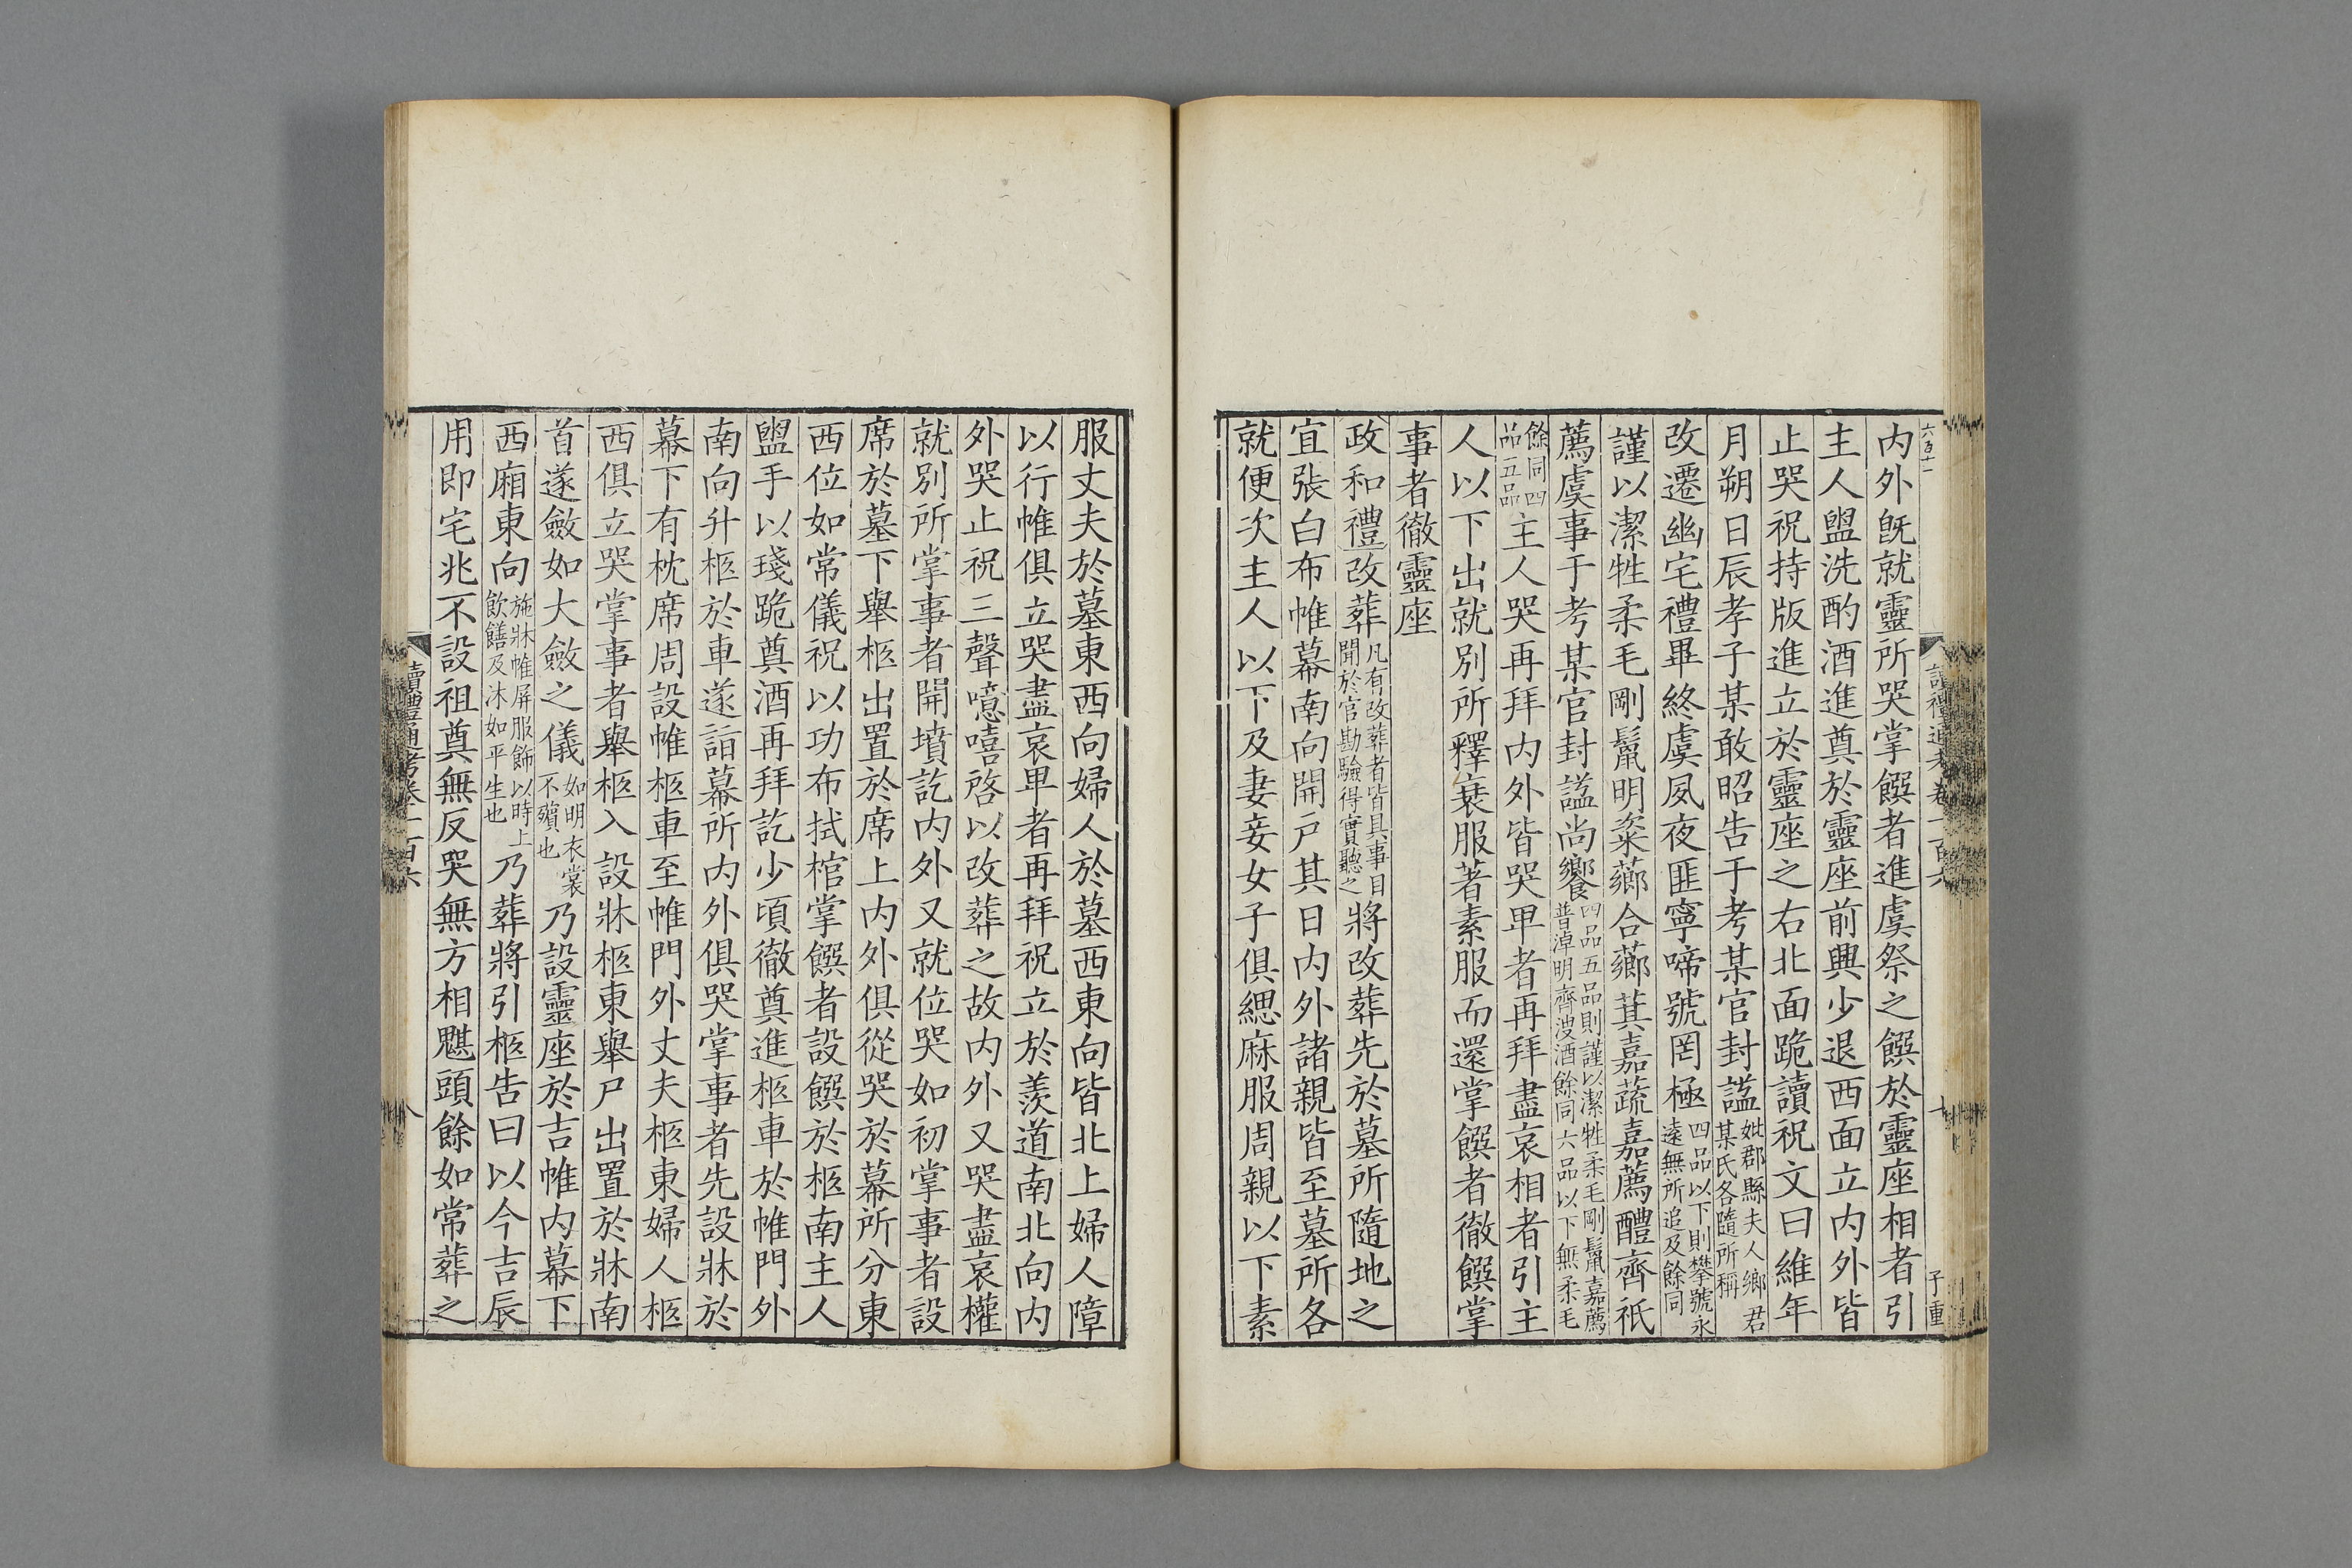 內外旣就靈所哭掌饌者進虞祭之饌於靈座相者引
主人盥洗酌酒進奠於靈座前興少退西面立內外皆
止哭祝持版進立於靈座之右北面跪讀祝文曰維年
月朔日辰孝子某敢昭告于考某官封謚妣郡縣夫人鄉君某氏各隨所稱
改遷幽宅禮畢終虞夙夜匪寧啼號罔極四品以下則攀號永遠無所追及餘同
謹以潔牲柔毛剛鬣明粢薌合薌萁嘉蔬嘉薦醴齊祇
薦虞事于考某官封謚尚饗四品五品則謹以潔牲柔毛剛鬣嘉薦普淖明齊溲酒餘同六品以下無柔毛
餘同四品五品主人哭再拜內外皆哭卑者再拜盡哀相者引主
人以下出就別所釋衰服著素服而還掌饌者徹饌掌
事者徹靈座
政和禮改葬凡有改葬者皆具事目聞於官勘驗得實聽之將改葬先於墓所隨地之
宜張白布帷幕南向開戶其日內外諸親皆至墓所各
就便次主人以下及妻妾女子俱緦麻服周親以下素
服丈夫於墓東西向婦人於墓西東向皆北上婦人障
以行帷俱立哭盡哀卑者再拜祝立於羨道南北向內
外哭止祝三聲噫嘻啓以改葬之故內外又哭盡哀權
就別所掌事者開墳訖內外又就位哭如初掌事者設
席於墓下舉柩出置於席上內外俱從哭於幕所分東
西位如常儀祝以功布拭棺掌饌者設饌於柩南主人
盥手以琖跪奠酒再拜訖少頃徹奠進柩車於帷門外
南向升柩於車遂詣幕所內外俱哭掌事者先設牀於
幕下有枕席周設帷柩車至帷門外丈夫柩東婦人柩
西俱立哭掌事者舉柩入設牀柩東舉尸出置於牀南
首遂斂如大斂之儀如明衣裳不殯也乃設靈座於吉帷內幕下
西廂東向施牀帷屏服飾以時上飲饍及沐如平生也乃葬將引柩告曰以今吉辰
用即宅兆不設祖奠無反哭無方相魌頭餘如常葬之